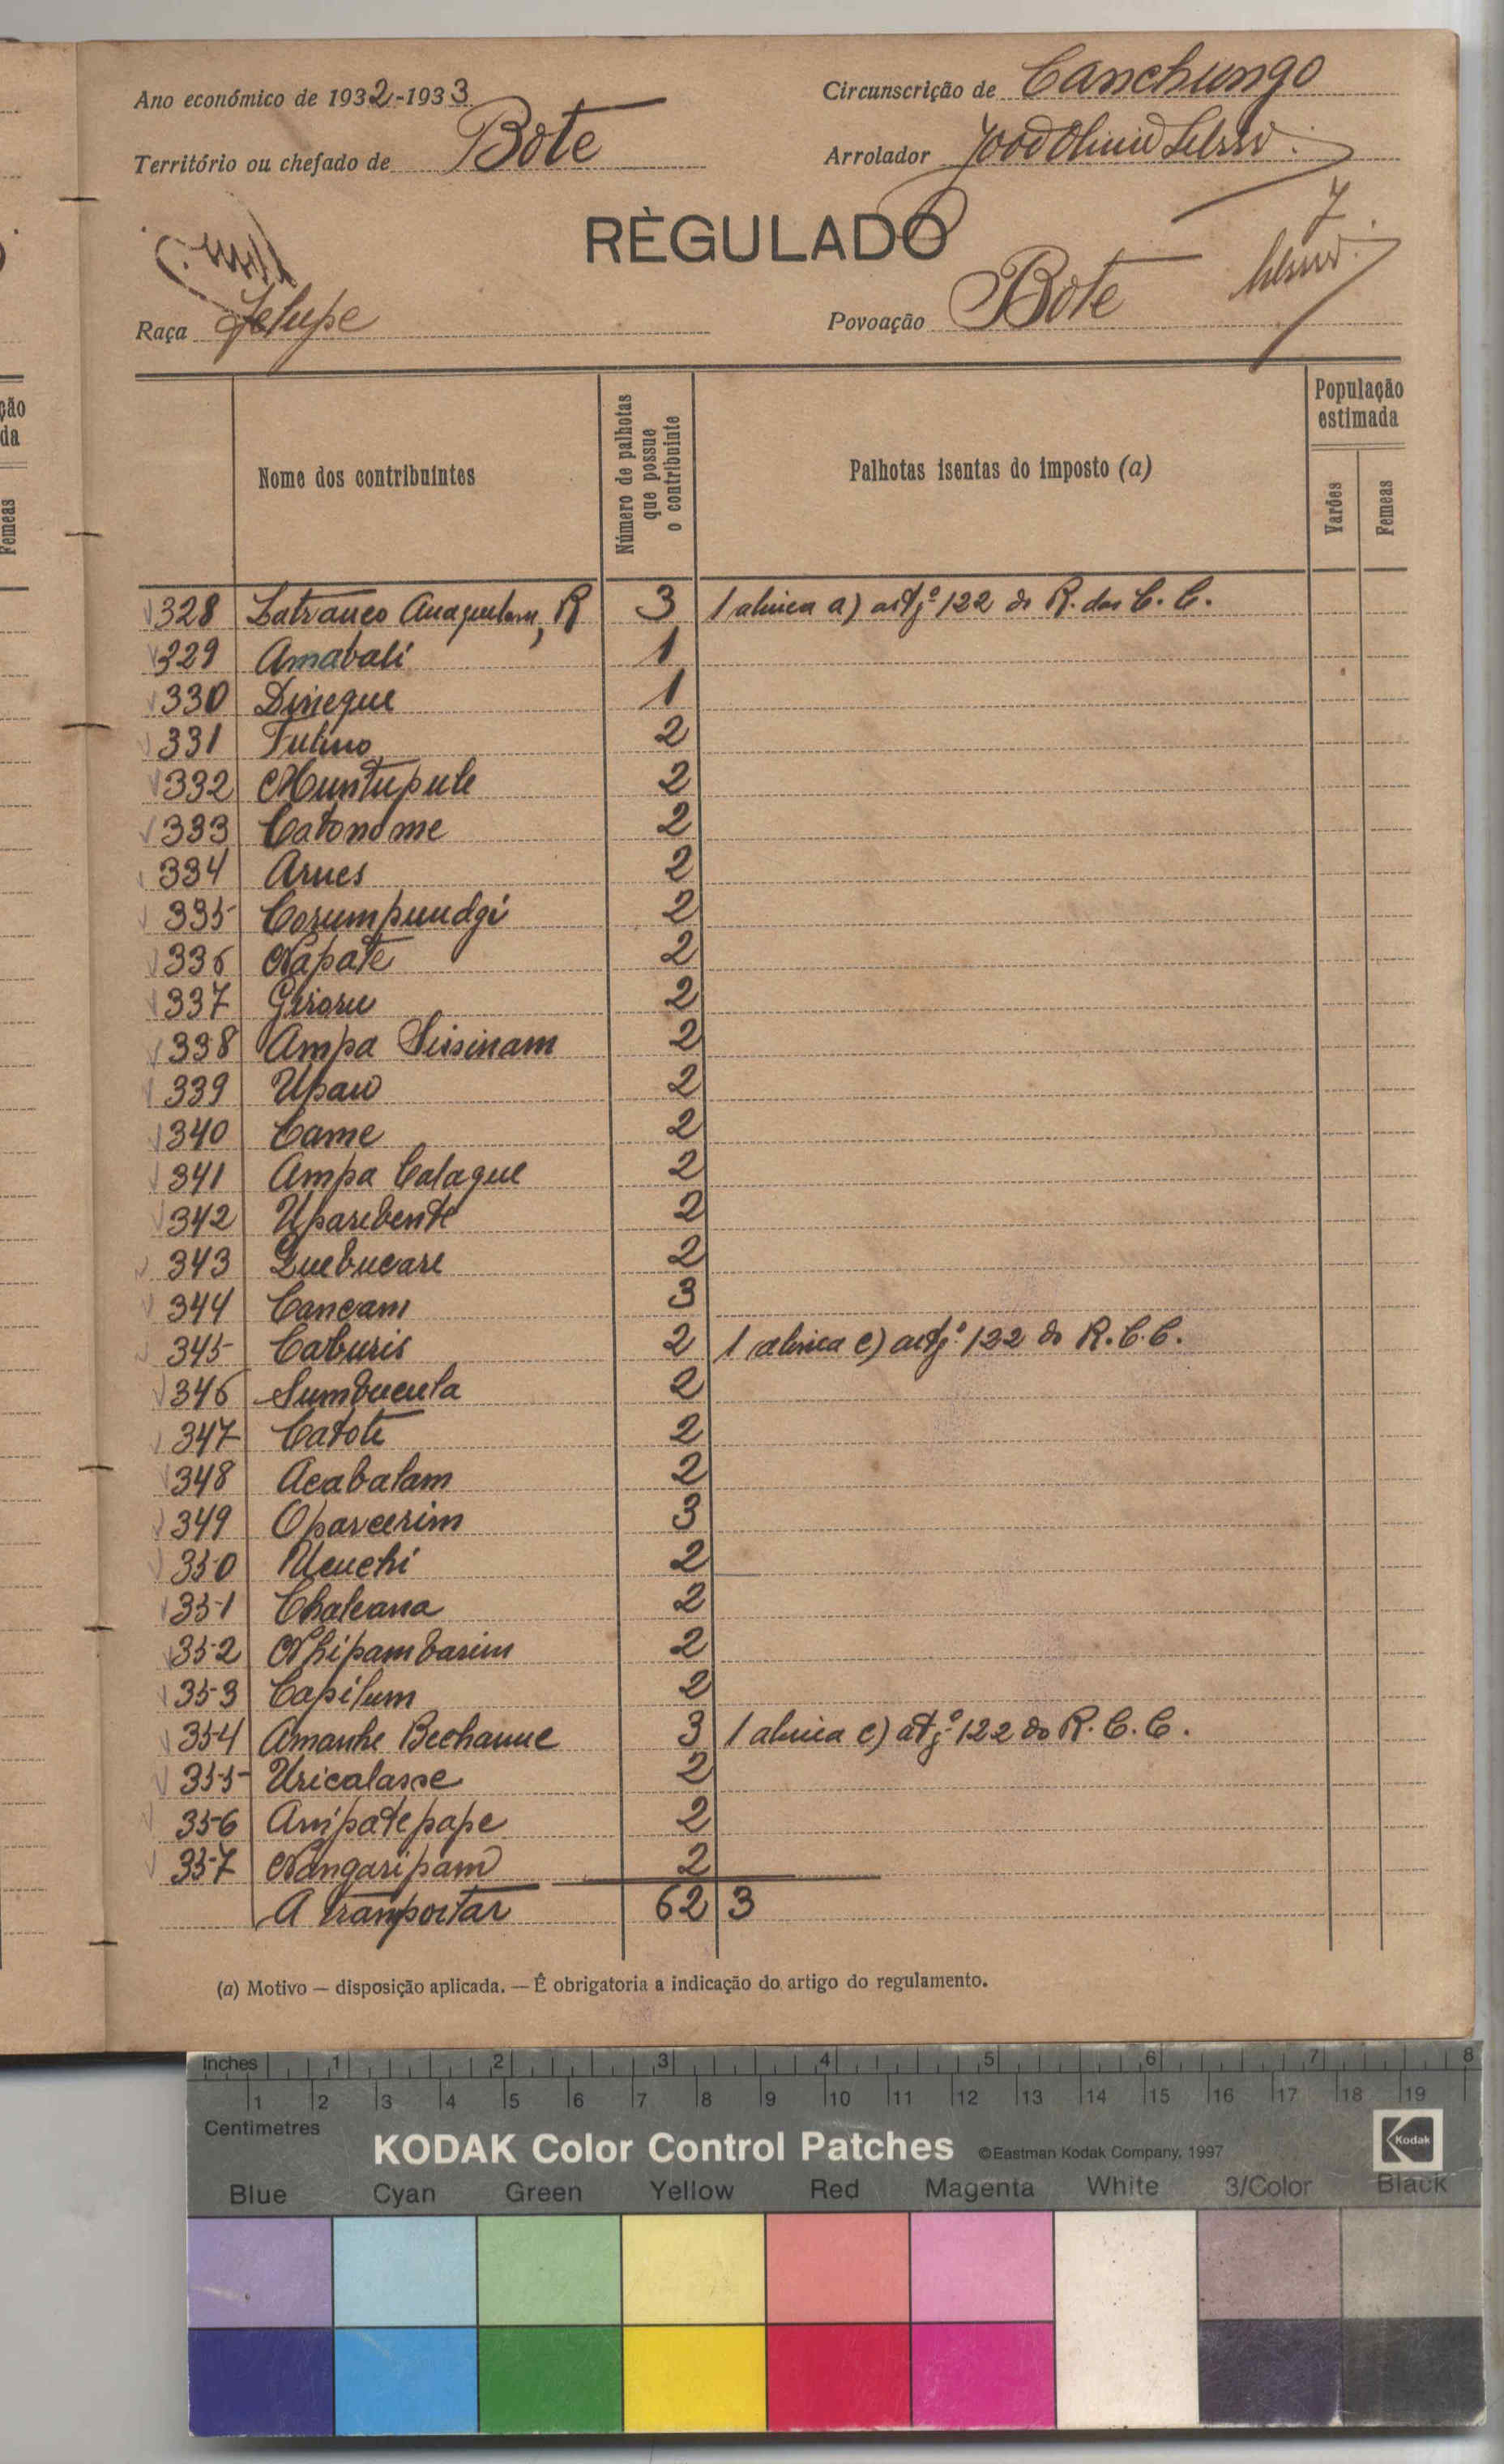 Ano económico de 1932-1933
Circunscrição de Canchungo
Território ou chefado de Bote
Arrolador
RÈGULADO
7
Raça Felupe
Povoação Bote
Nome dos contribuintes
Número de palhotas que possue o contribuinte
Palhotas isentas do imposto (a)
População estimada
Varões
Femeas
328 R 3 1 alinea a) artgº 122 do R. das C. C.
329 Amabali 1
330 Dinegue 1
331 Tulino 2
332 Muntupule 2
333 Catonome 2
334 Arues 2
335 Corumpundgi 2
336 Napate 2
337 2
338 Ampa Sirinam 2
339 Upaw 2
340 Came 2
341 Ampa Calague 2
342 Uparebente 2
343 Quebucare 2
344 Cancam 3
345 Caburis 2 1 alinea c) artgº 122 do R. C. C.
346 Sumbucula 2
347 Catote 2
348 Acabalam 2
349 Oparcerim 3
350 Ucuchi 2
351 Chaleana 2
352 Nhipambarim 2
353 Capilum 2
354 Amanhe 3 1 alinea c) atgº 122 do R. C. C.
355 Uricalasse 2
356 Ampatepape 2
357 Nangaripam 2
A Transportar 62 3
(a) Motivo — disposição aplicada. — É obrigatoria a indicação do artigo do regulamento.
ção
da
Femeas
Inches 1 2 3 4 5 6 7 8
1 2 3 4 5 6 7 8 9 10 11 12 13 14 15 16 17 18 19
Centimetres
KODAK Color Control Patches ©Eastman Kodak Company, 1997 Kodak
Blue Cyan Green Yellow Red Magenta White 3/Color Black